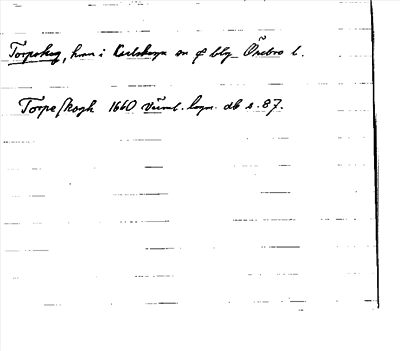 Torpskog, hmn i Karlskoga sn o bbg Örebro l.
Torpeskogh 1660 Värml. lagm. db s. 87.